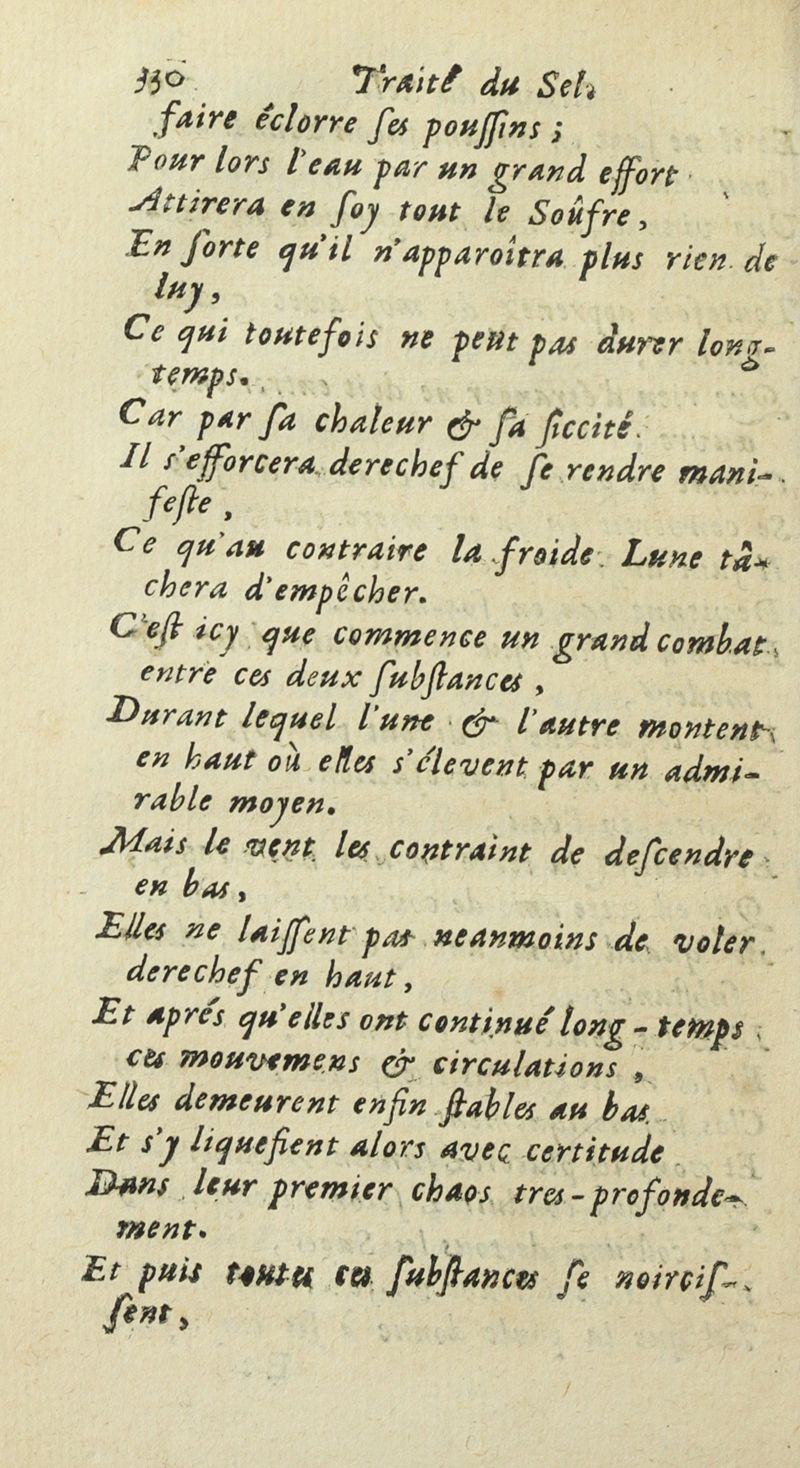 330 Traité du Sel,
faire éclorre ſes pouſſins ;
Pour lors l'eau par un grand effort
Attirera en ſoy tout le Soûfre,
En ſorte qu'il n'apparoîtra plus rien de
luy,
Ce qui toutefois ne peut pas durer long-
temps.
Car par ſa chaleur & ſa ſiccité.
Il s'efforcera derechef de ſe rendre mani-
feſte,
Ce qu'au contraire la froide Lune tâ-
chera d'empêcher.
C'eſt icy que commence un grand combat
entre ces deux ſubſtances,
Durant lequel l'une & l'autre montent
en haut où elles s'élevent par un admi-
rable moyen.
Mais le vent les contraint de deſcendre
en bas,
Elles ne laiſſent pas neanmoins de voler
derechef en haut,
Et aprés qu'elles ont continué long-temps
ces mouvemens & circulations,
Elles demeurent enfin ſtables au bas
Et s'y liquefient alors avec certitude
Dans leur premier chaos tres-profonde-
ment.
Et puis toutes ces ſubſtances ſe noirciſ-
ſent,